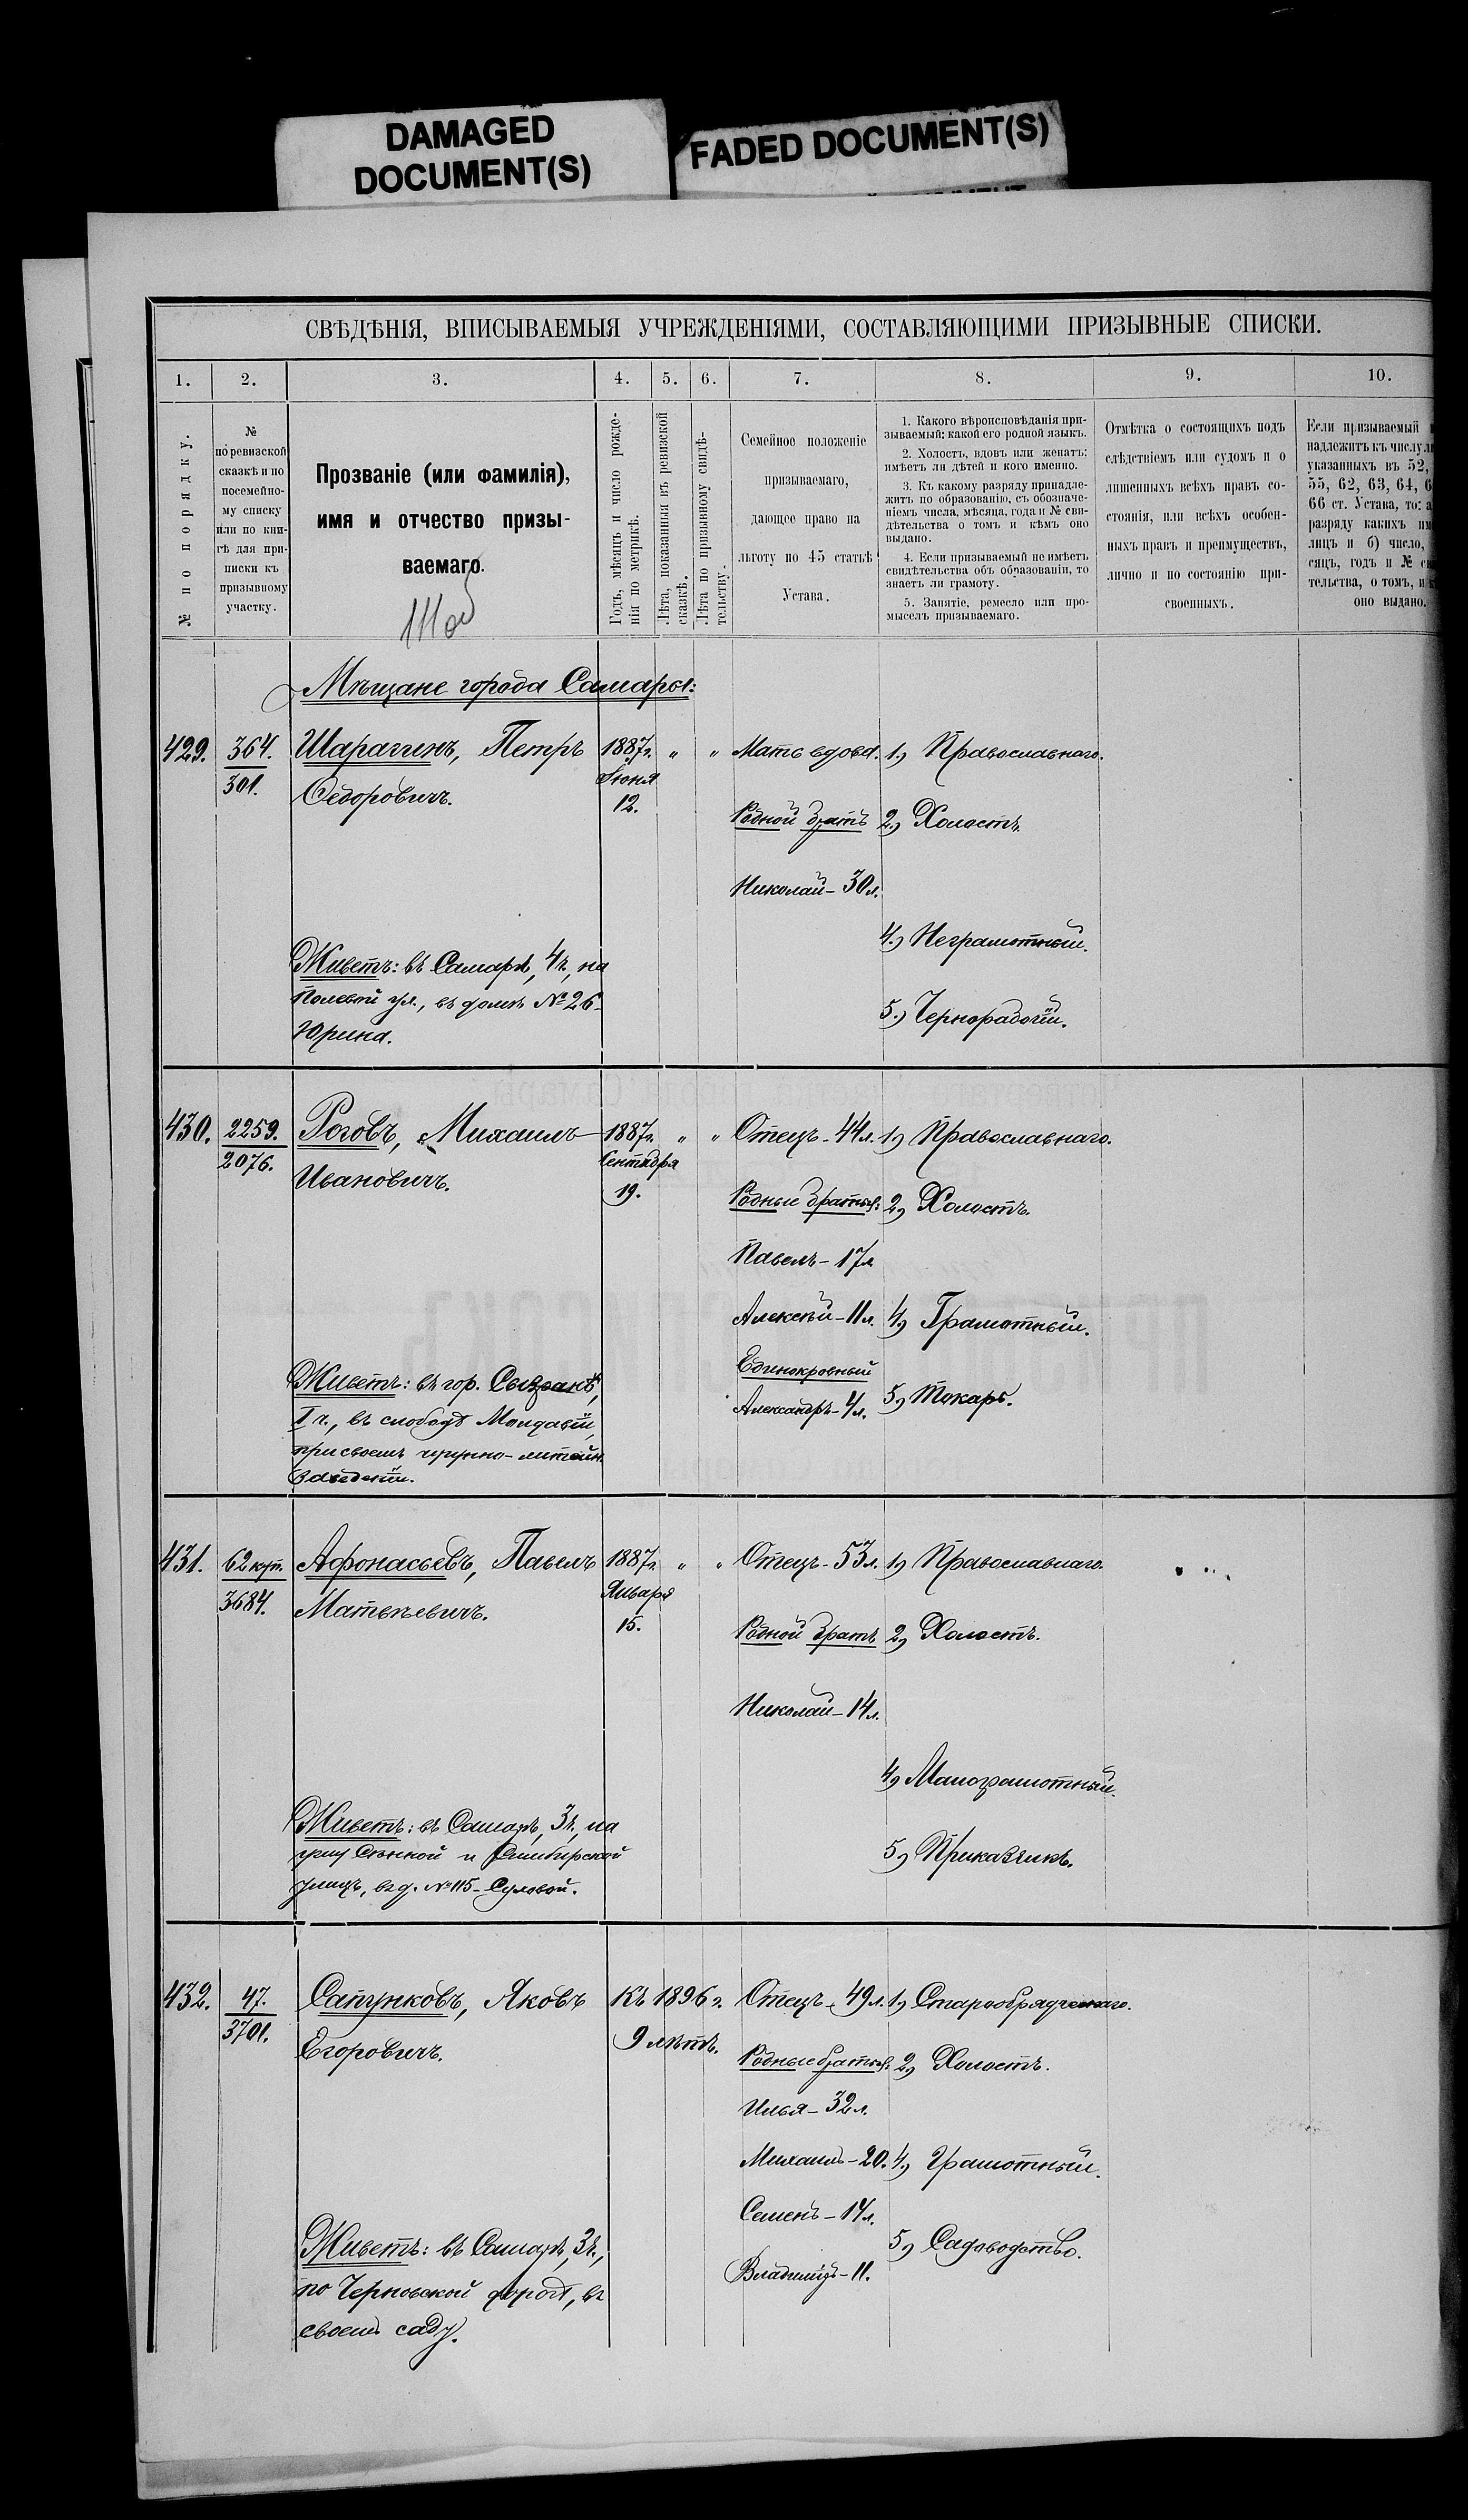 DAMAGED
DOCUMENT(S)
FADED DOCUMENT(S)
СВѢДѢНІЯ, ВПИСЫВАЕМЫЯ УЧРЕЖДЕНІЯМИ, СОСТАВЛЯЮЩИМИ ПРИЗЫВНЫЕ СПИСКИ.
1. 2. 3. 4. 5. 6. 7. 8. 9. 10.
№ по порядку.
№
по ревизской
сказкѣ и по
посемейно-
му списку
или по кни-
гѣ для при-
писки къ
призывному
участку.
Прозваніе (или фамилія),
имя и отчество призы-
ваемаго.
Годъ, мѣсяцъ и число рожде-
нія по метрикѣ.
Лѣта, показанныя въ ревизской
сказкѣ.
Лѣта по призывному свидѣ-
тельству.
Семейное положеніе
призываемаго,
дающее право на
льготу по 45 статьѣ
Устава.
1. Какого вѣроисповѣданія при-
зываемый; какой его родной языкъ.
2. Холостъ, вдовъ или женатъ;
имѣетъ ли дѣтей и кого именно.
3. Къ какому разряду принадле-
житъ по образованію, съ обозначе-
ніемъ числа, мѣсяца, года и № сви-
дѣтельства о томъ и кѣмъ оно
выдано.
4. Если призываемый не имѣетъ
свидѣтельства объ образованіи, то
знаетъ ли грамоту.
5. Занятіе, ремесло или про-
мыселъ призываемаго.
Отмѣтка о состоящихъ подъ
слѣдствіемъ или судомъ и о
лишенныхъ всѣхъ правъ со-
стоянія, или всѣхъ особен-
ныхъ правъ и преимуществъ,
лично и по состоянію при-
своенныхъ.
Если призываемый
надлежитъ къ числу
указанныхъ въ 52,
55, 62, 63, 64, 6
66 ст. Устава, то: а
разряду какихъ им
лицъ и б) число,
сяцъ, годъ и № св
тельства, о томъ, и к
оно выдано.
Мѣщане города Самары:
429. 364. Шарагинъ, Петръ 1887г. " " Мать вдова. 1) Православнаго.
301. Ѳедоровичъ. Іюня
12.
Родной братъ 2) Холостъ.
Николай - 30 л.
4.) Неграмотный.
Живетъ: въ Самарѣ, 4 ч., на
Полевой ул., въ домѣ № 26 -
Юрина.
5.) Чернорабочій.
430. 2259. Роговъ, Михаилъ 1887г. " " Отецъ - 44 л. 1) Православнаго.
2076. Ивановичъ. Сентября
19.
Родные братья: 2) Холостъ.
Павелъ - 17 л
Алексѣй - 11 л. 4) Грамотный.
Единокровный
Александръ - 4 л. 5) Токарь.
Живетъ: въ гор. Сызрани,
I ч., въ слободѣ Молдавіи,
при своемъ чугунно-литейн.
заведеніи.
431. 62 куп. Афонасьевъ, Павелъ 1887г. " " Отецъ - 53 л. 1) Православнаго.
3684. Матвѣевичъ. Января
15.
Родной братъ 2) Холостъ.
Николай - 14 л.
4) Малограмотный.
Живетъ: въ Самарѣ, 3 ч., на
углу Сѣнной и Симбирской
улицъ, въ д. № 115 - Сусловой.
5) Приказчикъ.
432. 47. Сапунковъ, Яковъ Къ 1896 г. Отецъ - 49 л. 1) Старообрядческаго.
3701. Егоровичъ. 9 лѣтъ.
Родные братья: 2) Холостъ.
Илья - 32 л.
Михаилъ - 20. 4) Грамотный.
Семенъ - 14 л.
Владиміръ - 11. 5) Садоводство.
Живетъ: въ Самарѣ, 3 ч.,
по Черновской дорогѣ, въ
своемъ саду.